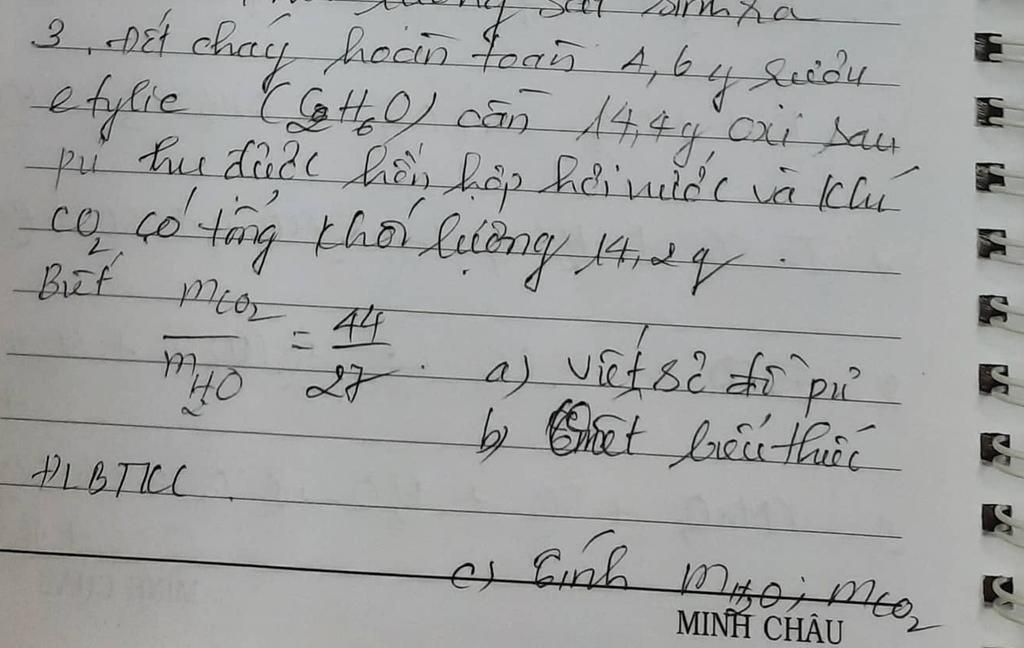 3. Đốt cháy hoàn toàn 4,6g rượu
etylic (C2H6O) cần 14,4g oxi sau
pứ thu được hỗn hợp hơi nước và khí
CO2 có tổng khối lượng 14,2g.
Biết mCO2 / mH2O = 44 / 27. a) Viết sơ đồ pứ
b) viết biểu thức
ĐLBTKL.
c) Tính mH2O; mCO2
MINH CHÂU